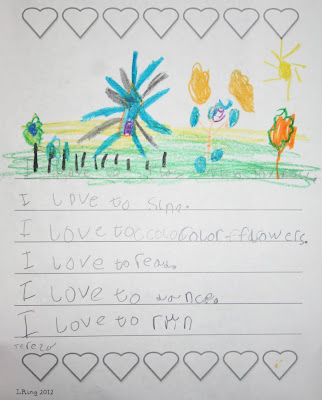 I Love to sing.
I Love to color flowers.
I Love to read.
I Love to dance.
I Love to run
I.Ring 2012